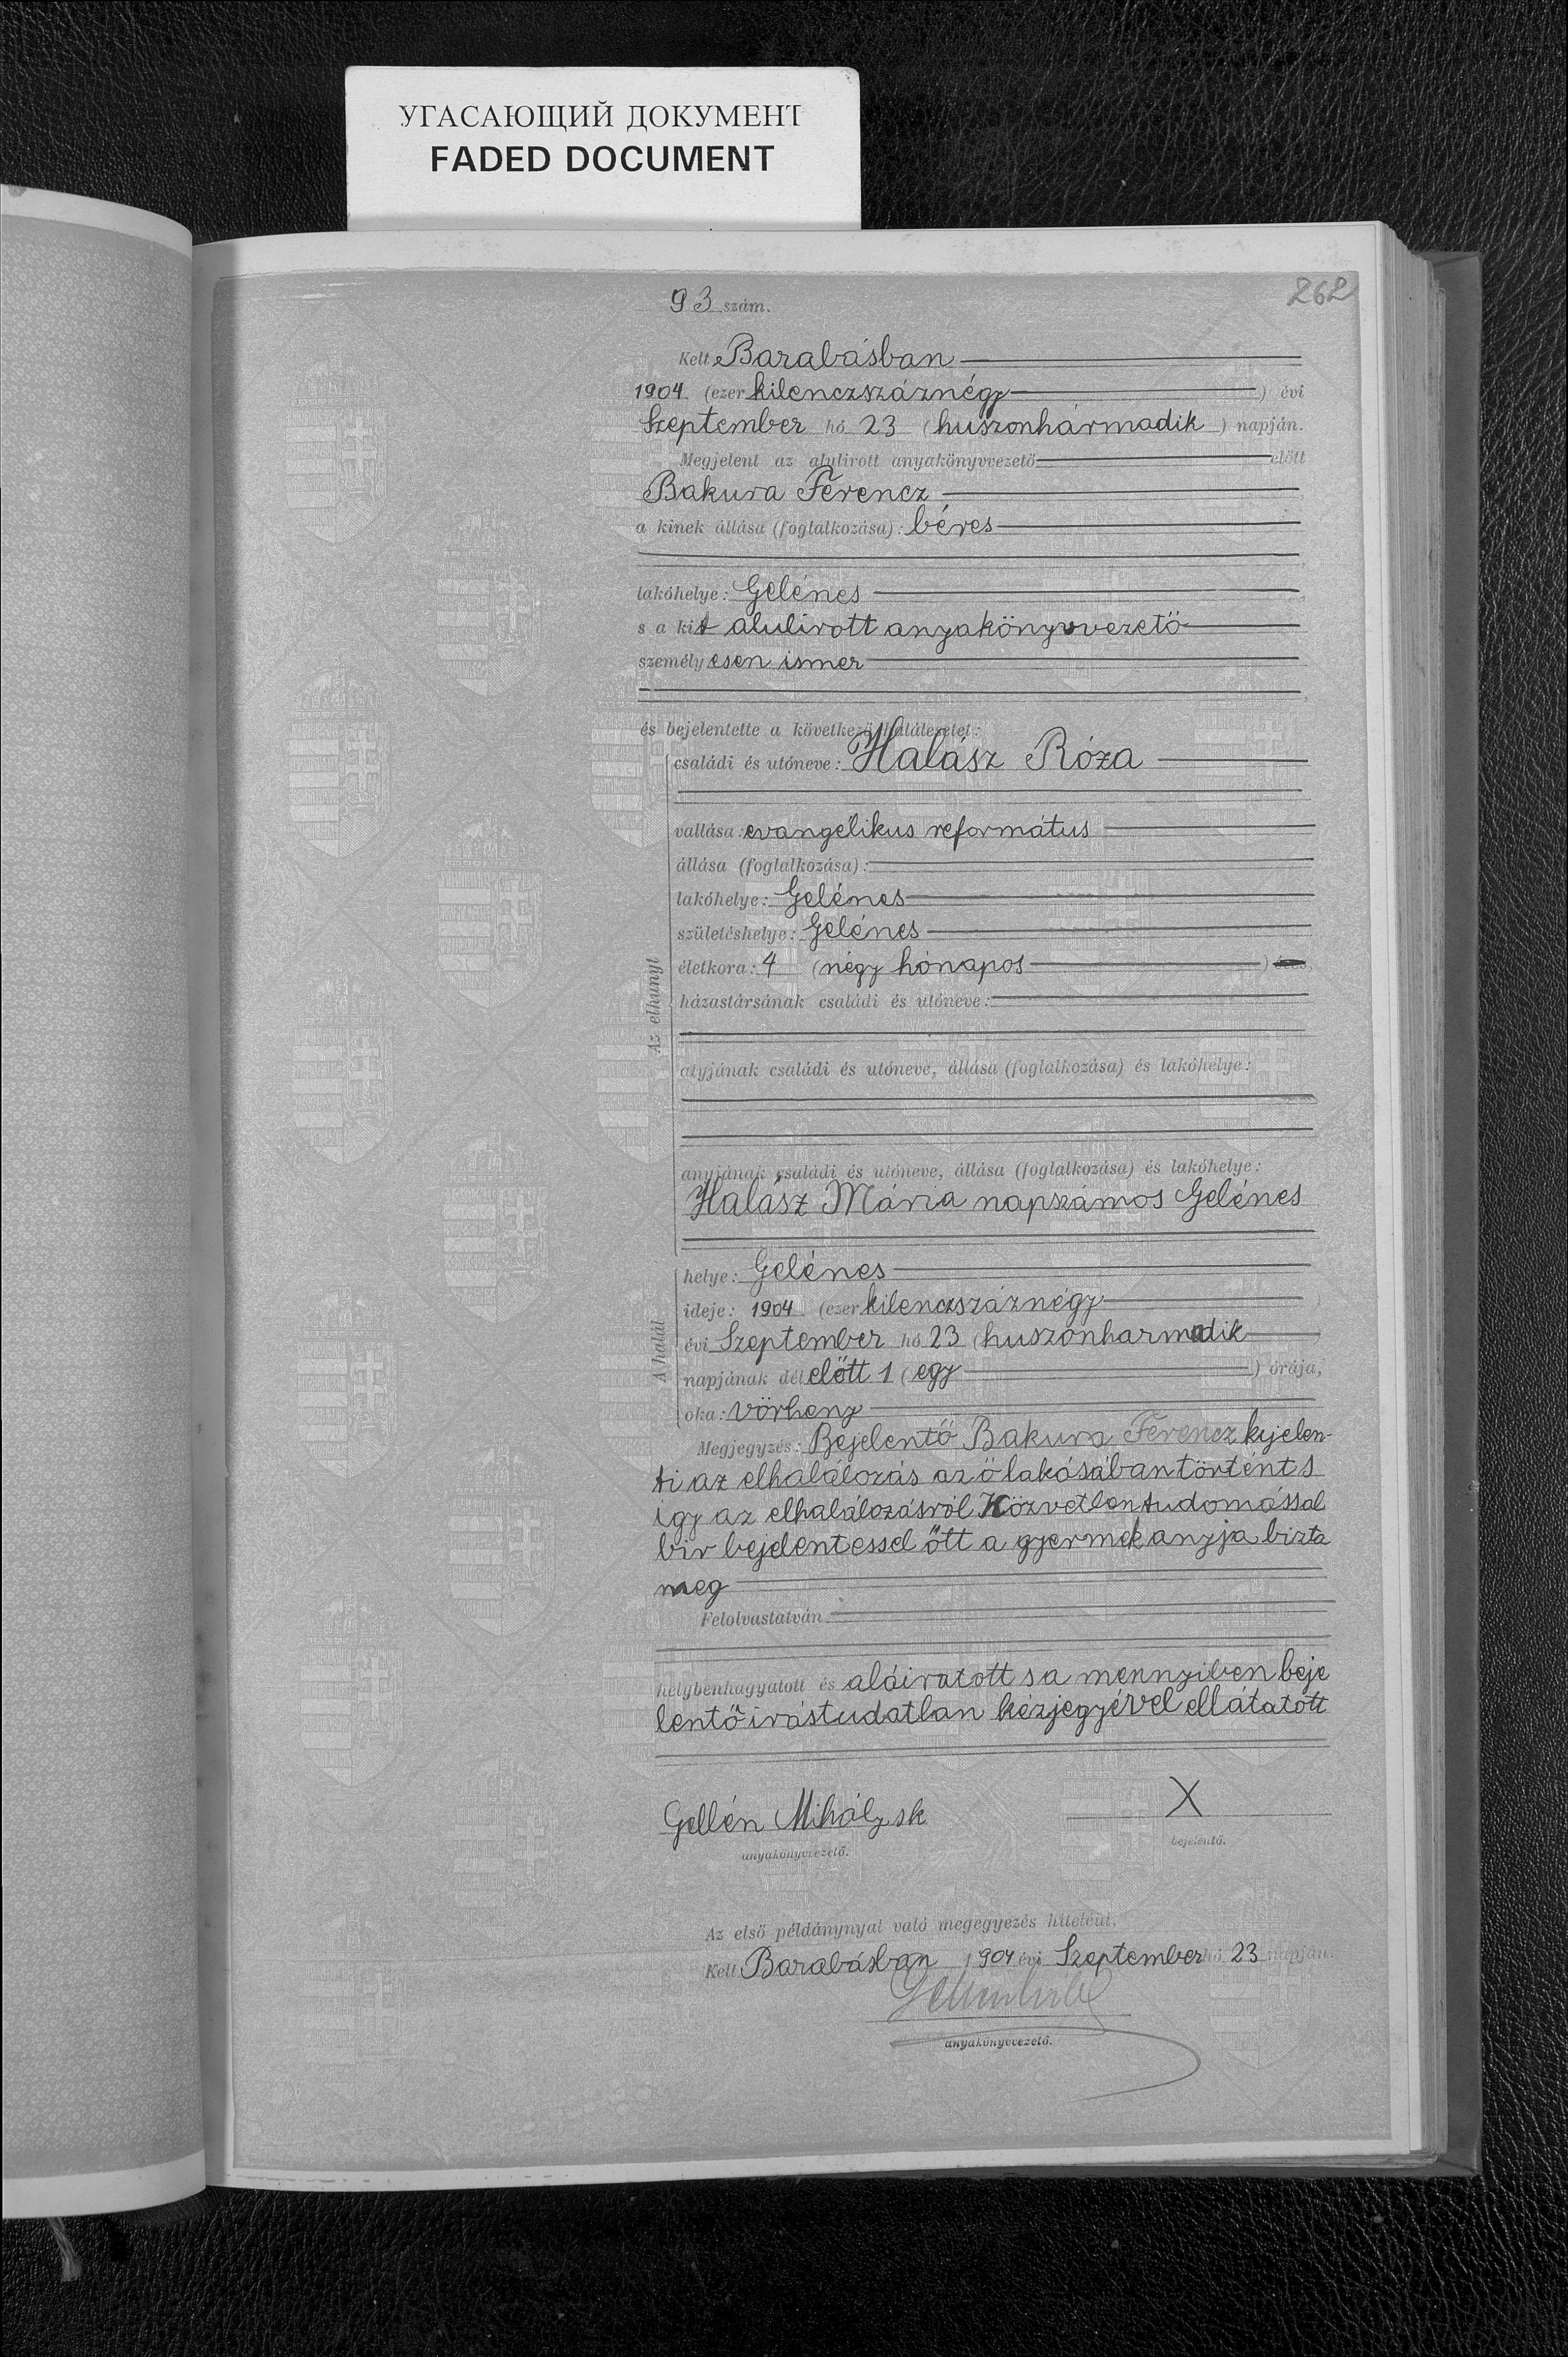 УГАСАЮЩИЙ ДОКУМЕНТ
FADED DOCUMENT
262
93 szám.
Kelt Barabásban
1904 (ezer kilenczszáznégy) évi
Szeptember hó 23 (huszonhármadik) napján.
Megjelent az alulirott anyakönyvvezető előtt
Bakura Ferencz
a kinek állása (foglalkozása): béres
lakóhelye: Gelénes
s a kit alulirott anyakönyvvezető
személyesen ismer
és bejelentette a következő halálesetet:
Az elhunyt
családi és utóneve: Halász Róza
vallása: evangélikus református
állása (foglalkozása):
lakóhelye: Gelénes
születéshelye: Gelénes
életkora: 4 (négy hónapos) éves,
házastársának családi és utóneve:
atyjának családi és utóneve, állása (foglalkozása) és lakóhelye:
anyjának családi és utóneve, állása (foglalkozása) és lakóhelye:
Halász Mária napszámos Gelénes
A halál
helye: Gelénes
ideje: 1904 (ezer kilenczszáznégy)
évi Szeptember hó 23 (huszonharmadik)
napjának délelőtt 1 (egy) órája,
oka: vörheny
Megjegyzés: Bejelentő Bakura Ferencz kijelen-
ti az elhalálozás az ő lakásában történt s
igy az elhalálozásról Közvetlen tudomással
bir bejelentessel őtt a gyermek anyja bizta
meg
Felolvastatván
helybenhagyatott és aláiratott s a mennyiben beje
lentő irástudatlan kézjegyével ellátatott
Gellén Mihály sk
X
anyakönyvvezető.
bejelentő.
Az első példánynyal való megegyezés hiteléül.
Kelt Barabásban 1904 évi Szeptember hó 23 napján.
anyakönyvvezető.